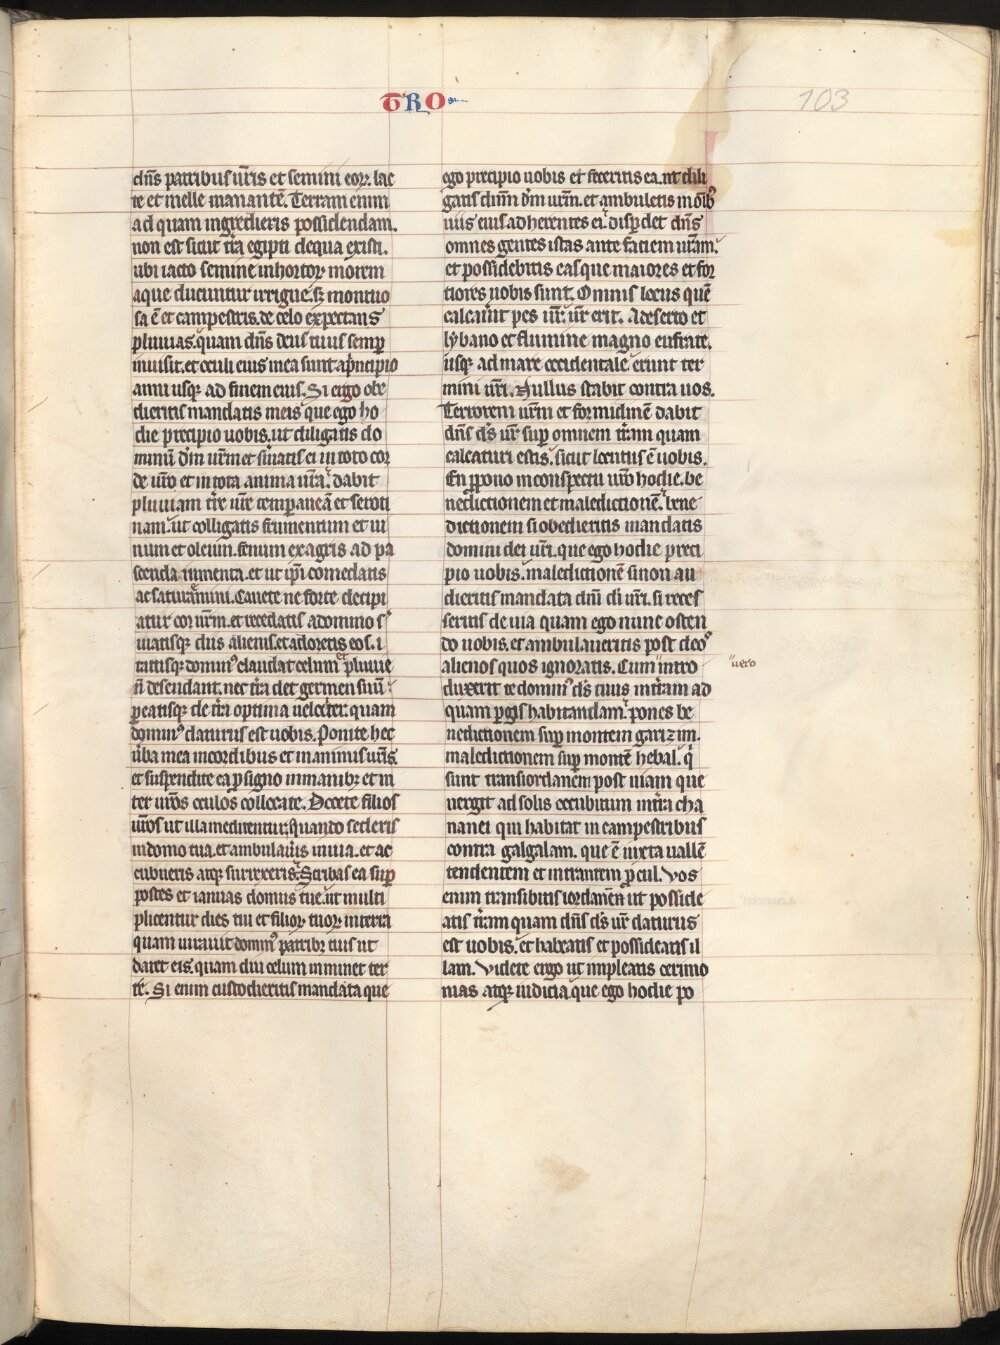 TRO
103
dn̄s patribus ur̄is et semini eoꝝ. lac
te et melle manantē. Terram enim
ad quam ingredieris possidendam.
non est sicut tr̄a egipti dequa existi.
ubi iacto semine inhortoꝝ morem
aque ducuntur irrigue. sꝫ montuo
sa ē et campestris. de celo expectans
pluuias. quam dn̄s deus tuus semp̄
inuisit. et oculi eius inea sunt ap̄ncipio
anni usqꝫ ad finem eius. Si ergo obe
dieritis mandatis meis que ego ho
die precipio uobis. ut diligatis do
minū dm̄ ur̄m et s̄uiatis ei in toto cor
de ur̄o et in tota anima ur̄a. dabit
pluuiam tr̄e ur̄e temporaneā et seroti
nam. ut colligatis frumentum et ui
num et oleum. fenum ex agris ad pa
scenda iumenta. et ut ip̄i comedatis
ac saturemini. Cauete ne forte decipi
atur cor ur̄m. et recedatis a domino s̄
uiatisqꝫ diis alienis. et adoretis eos. i
ratusqꝫ dominꝰ claudat celum et pluuie
n̄ descendant. nec tr̄a det germen suū
ꝑeatisqꝫ de tr̄a optima uelociter. quam
dominꝰ daturus est uobis. Ponite hec
ūba mea incordibus et in animis ur̄is.
et suspendite ea ꝓ signo inmanibꝫ et in
ter ur̄os oculos collocate. Docete filios
ur̄os ut illa meditentur. Quando sederis
indomo tua. et ambulaūis inuia. et ac
cubueris atqꝫ surrexeris. Scribas ea sup̄
postes et ianuas domus tue. ut multi
plicentur dies tui et filioꝝ tuoꝝ interra
quam iurauit dominꝰ patribꝫ tuis ut
daret eis. quam diu celum inminet ter
re. Si enim custodieritis mandata que
ego precipio uobis et feceritis ea. ut dili
gatis dnm̄ dm̄ ur̄m. et ambuletis in oīibꝫ
uiis eius adherentes ei. disꝑdet dn̄s
omnes gentes istas ante faciem ur̄am.
et possidebitis eas que maiores et for
tiores uobis sunt. Omnis locus quē
calcaūit pes ur̄. ur̄ erit. Adeserto et
lybano et flumine magno eufrate.
usqꝫ ad mare occidentale erunt ter
mini ur̄i. Nullus stabit contra uos.
Terrorem ur̄m et formidinē dabit
dn̄s ds̄ ur̄ sup̄ omnem tr̄am quam
calcaturi estis. sicut locutus ē uobis.
En ꝓpono inconspectu ur̄o hodie. be
nedictionem et maledictionē. bene
dictionem si obedieritis mandatis
domini dei ur̄i. que ego hodie preci
pio uobis. maledictionē si non au
dieritis mandata dnī di ur̄i. si reces
seritis de uia quam ego nunc osten
do uobis. et ambulaueritis post deoꝰ
alienos quos ignoratis. Cum intro
uero
duxerit te dominꝰ ds̄ tuus intr̄am ad
quam ꝑgis habitandam. pones be
nedictionem sup̄ montem garizim.
maledictionem sup̄ montē hebal. q̄
sunt transiordanem post uiam que
uergit ad solis occubitum intr̄a cha
nanei qui habitat in campestribus
contra galgalam. que ē iuxta uallē
tendentem et intrantem ꝓcul. Vos
enim transibitis iordanen ut posside
atis tr̄am quam dn̄s ds̄ ur̄ daturus
est uobis. et habeatis et possideatis il
lam. Videte ergo ut impleatis cerimo
nias atqꝫ iudicia. que ego hodie po